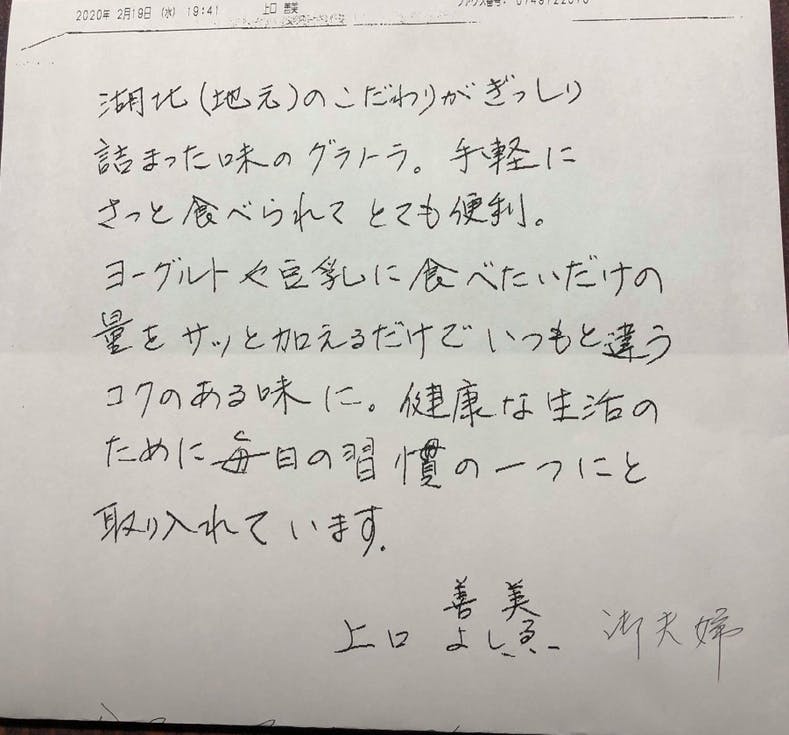 2020年 2月19日 (水) 19:41 上口 善美 ファクス番号:
湖北(地元)のこだわりがぎっしり
詰まった味のグラノーラ。手軽に
さっと食べられてとても便利。
ヨーグルトや豆乳に食べたいだけの
量をサッと加えるだけでいつもと違う
コクのある味に。健康な生活の
ために毎日の習慣の一つにと
取り入れています。
善美
上口 御夫婦